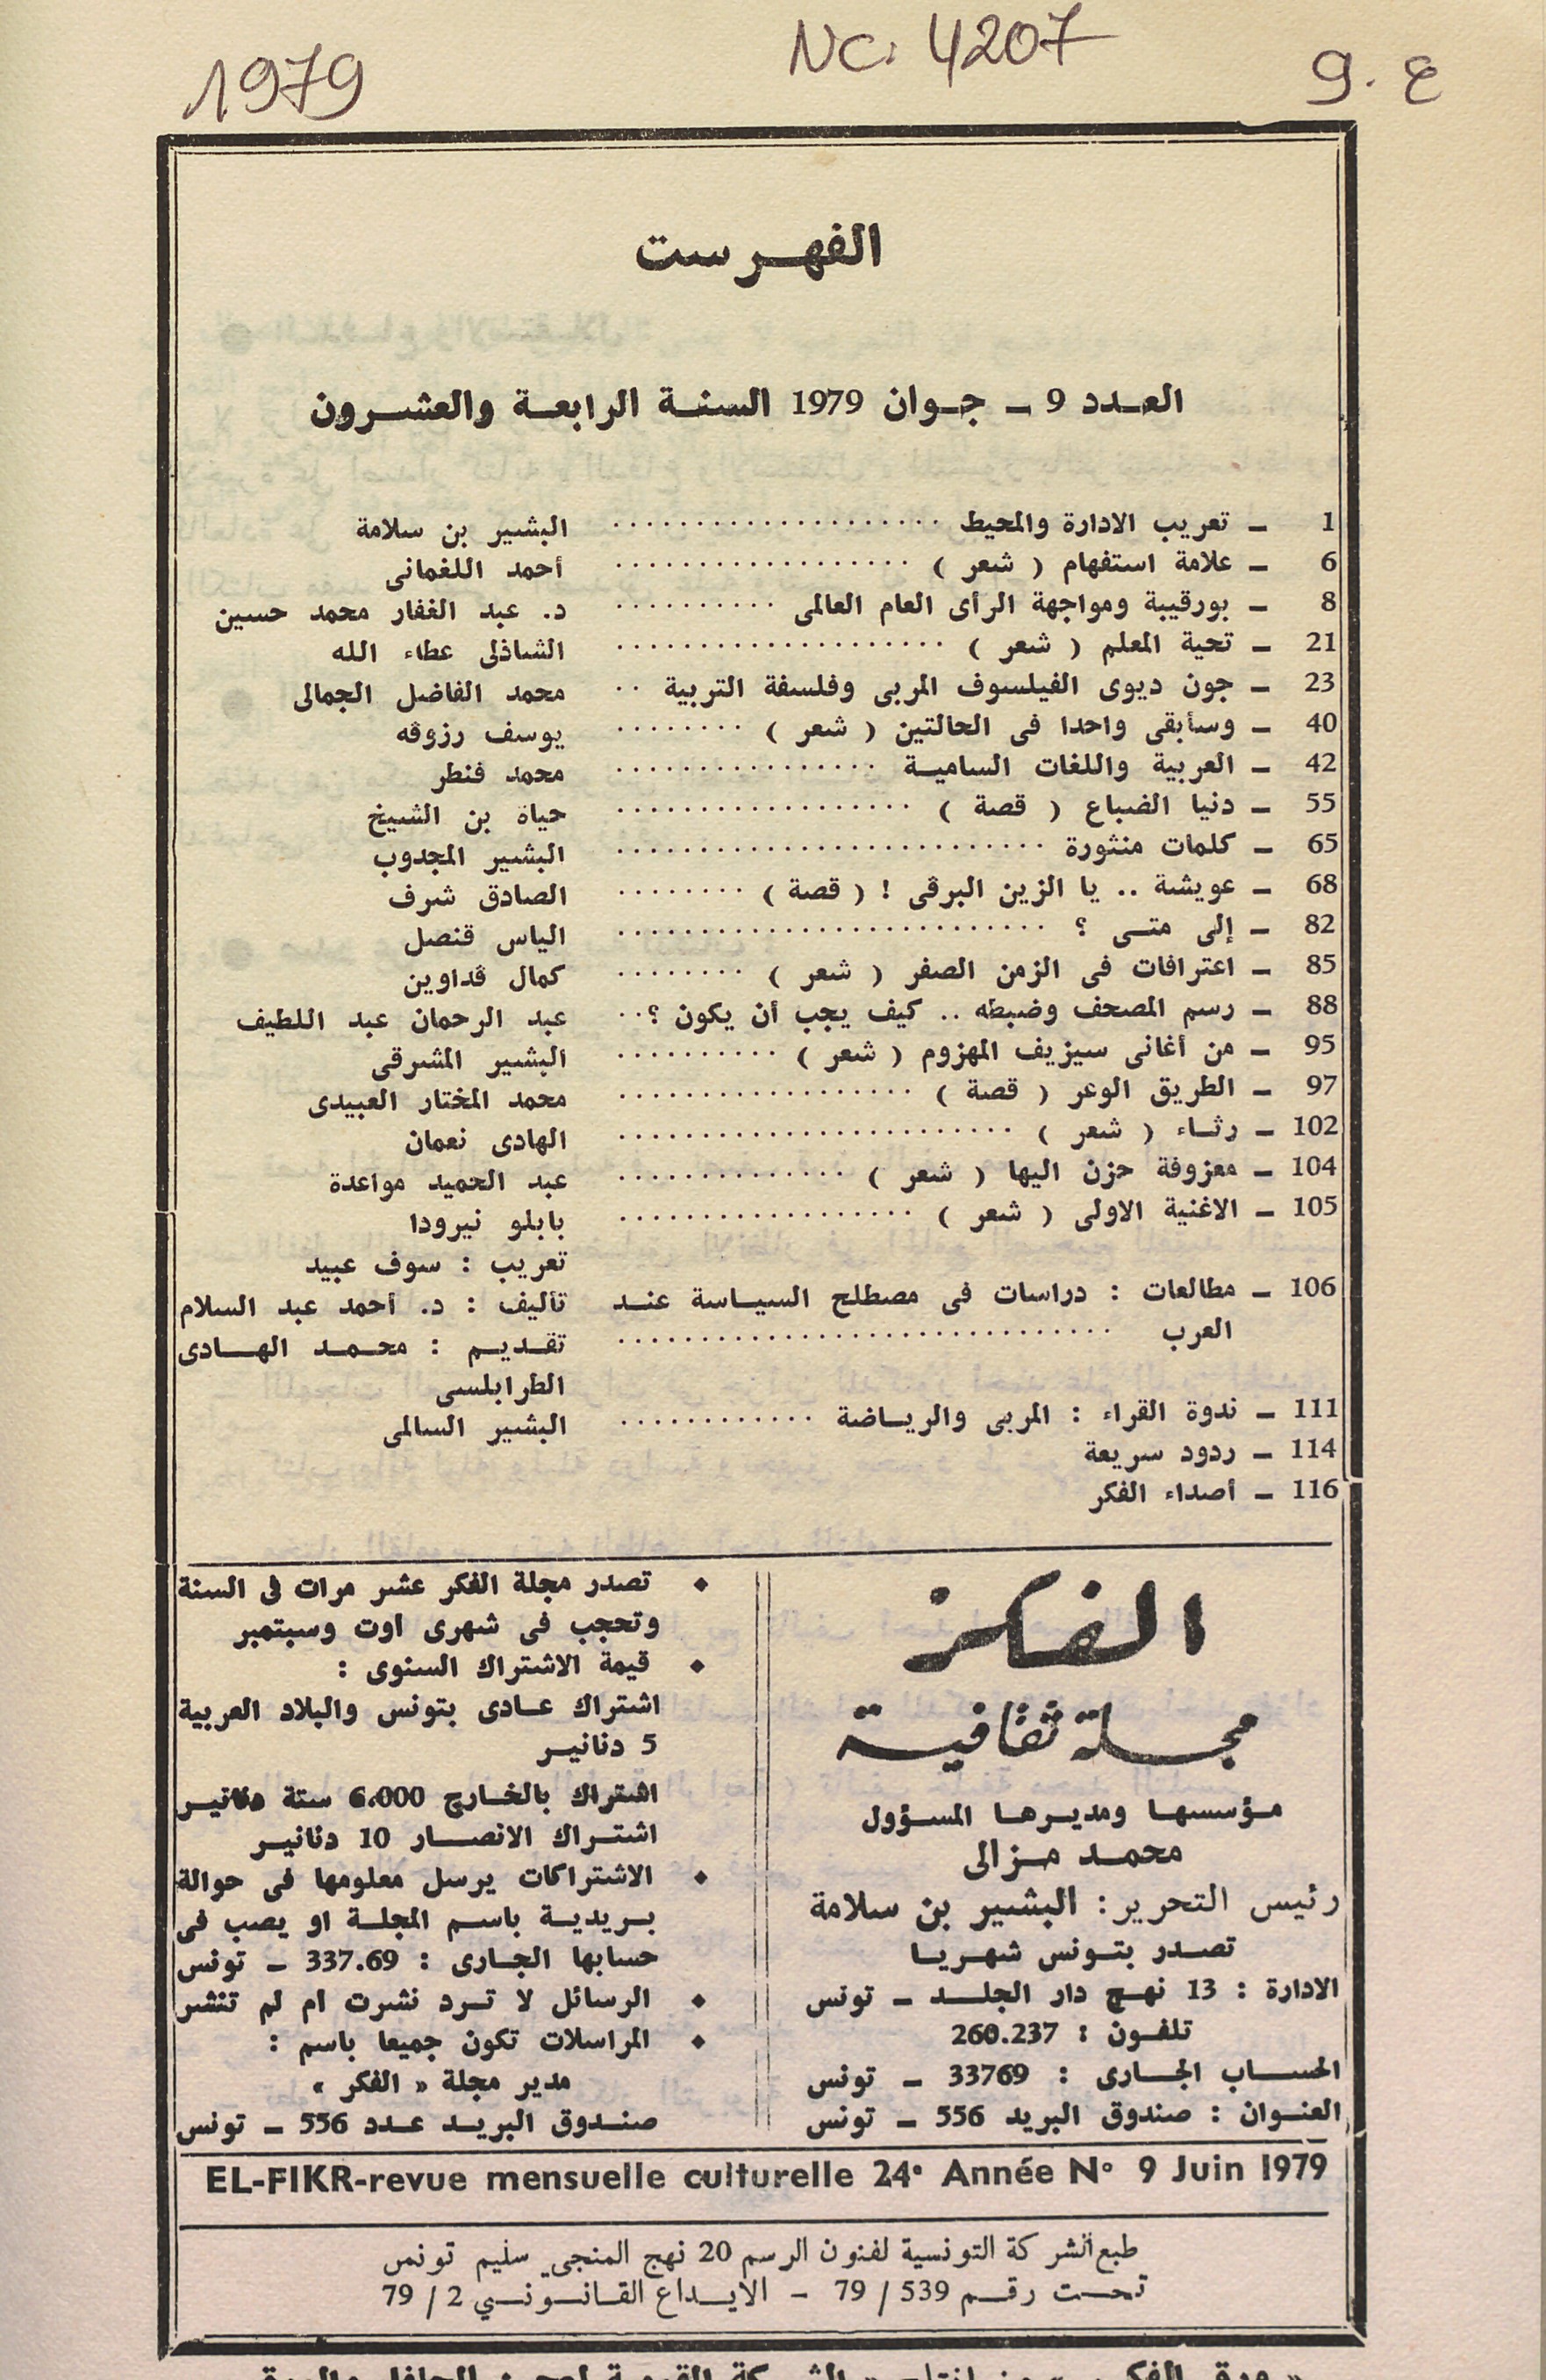 1979
NC. 4207
9. ع
الفهـرست
العـدد 9 ـ جـوان 1979 السنـة الرابعـة والعشـرون
1 ـ تعريب الادارة والمحيط .................... البشير بن سلامة
6 ـ علامة استفهام ( شعر ) .................. أحمد اللغمانى
8 ـ بورقيبة ومواجهة الرأى العام العالمى .......... د. عبد الغفار محمد حسين
21 ـ تحية المعلم ( شعر ) .................... الشاذلى عطاء الله
23 ـ جون ديوى الفيلسوف المربى وفلسفة التربية .. محمد الفاضل الجمالى
40 ـ وسأبقى واحدا فى الحالتين ( شعر ) ........ يوسف رزوقه
42 ـ العربية واللغات الساميـة ................ محمد فنطر
55 ـ دنيا الضباع ( قصة ) .................. حياة بن الشيخ
65 ـ كلمات منثورة ........................... البشير المجدوب
68 ـ عويشة .. يا الزين البرڤى ! ( قصة ) ........ الصادق شرف
82 ـ إلى متـى ؟ ........................... الياس قنصل
85 ـ اعترافات فى الزمن الصفر ( شعر ) ........ كمال ڤداوين
88 ـ رسم المصحف وضبطه .. كيف يجب أن يكون ؟.. عبد الرحمان عبد اللطيف
95 ـ من أغانى سيزيف المهزوم ( شعر ) .......... البشير المشرقى
97 ـ الطريق الوعر ( قصة ) .................. محمد المختار العبيدى
102 ـ رثـاء ( شعر ) ......................... الهادى نعمان
104 ـ معزوفة حزن اليها ( شعر ) .............. عبد الحميد مواعدة
105 ـ الاغنية الاولى ( شعر ) .................. بابلو نيرودا
تعريب : سوف عبيد
106 ـ مطالعات : دراسات فى مصطلح السيـاسة عنـد تأليف : د. أحمد عبد السلام
العرب ............................... تقـديـم : محـمـد الهـادى
الطرابلسى
111 ـ ندوة القراء : المربى والريـاضة ............ البشير السالمى
114 ـ ردود سريعة
116 ـ أصداء الفكر
الفكر
مجلة ثقافية
مـؤسسهـا ومديـرهـا المسـؤول
محمـد مـزالى
رئيس التحرير : البشير بن سلامة
تصـدر بتـونس شهـريـا
الادارة : 13 نهـج دار الجلـد ـ تونس
تلفـون : 260.237
الحسـاب الجـارى : 33769 ـ تونس
العنـوان : صندوق البريد 556 ـ تونس
♦ تصدر مجلة الفكر عشر مرات فى السنة
وتحجب فى شهرى اوت وسبتمبر
♦ قيمة الاشتراك السنوى :
اشتراك عـادى بتونس والبلاد العربية
5 دنانيـر
اشتراك بالخـارج 6.000 ستة دنانيـر
اشتـراك الانصـار 10 دنانيـر
♦ الاشتراكات يرسل معلومها فى حوالة
بـريديـة باسـم المجلـة او يصب فى
حسابها الجـارى : 337.69 ـ تونس
♦ الرسائل لا تـرد نشرت ام لم تنشر
♦ المراسلات تكون جميعا باسم :
مدير مجلة « الفكر »
صنـدوق البريـد عـدد 556 ـ تونس
EL-FIKR-revue mensuelle culturelle 24e Année N° 9 Juin 1979
طبع الشركة التونسية لفنون الرسم 20 نهج المنجي سليم تونس
تحـت رقـم 539 / 79 ـ الايـداع القـانـونـي 2 / 79